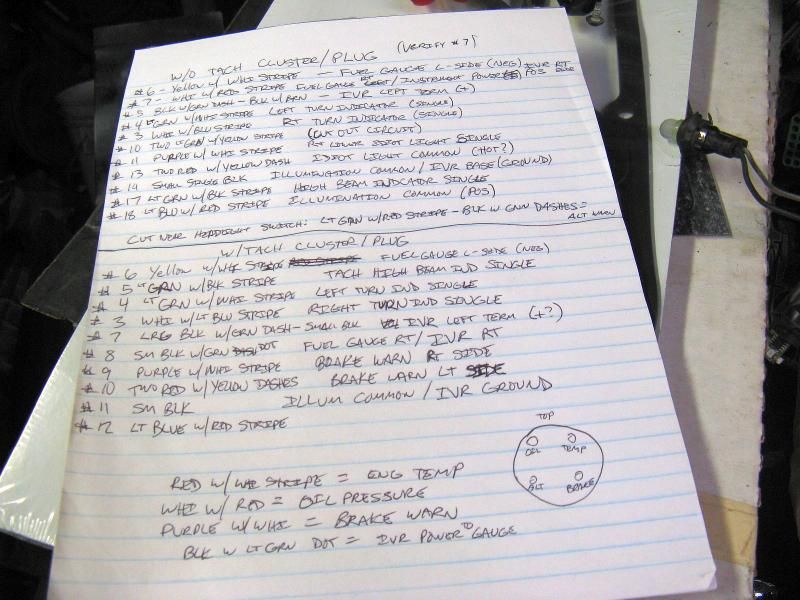 W/O TACH CLUSTER/PLUG (VERIFY #7)
#6 - YELLOW W/WHI STRIPE - FUEL GAUGE L-SIDE (NEG) IVR RT
#7 - WHI W/RED STRIPE FUEL GAUGE RT/INSTRUMENT POWER POS
#5 BLK W/GRN DASH - BLK W/WRN - IVR LEFT TERM (+)
#4 LT GRN W/WHI STRIPE LEFT TURN INDICATOR (SINGLE)
#3 WHI W/BLU STRIPE RT TURN INDICATOR (SINGLE)
#10 TWO LT GRN W/YELLOW STRIPE (CUT OUT CIRCUIT) RT LOWER IDIOT LIGHT SINGLE
#11 PURPLE W/ WHI STRIPE IDIOT LIGHT COMMON (HOT?)
#13 TWO RED W/YELLOW DASH
#14 SMALL SINGLE BLK ILLUMINATION COMMON/IVR BASE (GROUND)
#17 LT GRN W/BLK STRIPE HIGH BEAM INDICATOR SINGLE
#18 LT BLU W/RED STRIPE ILLUMINATION COMMON (POS)
CUT NEAR HEADLIGHT SWITCH: LT GRN W/RED STRIPE - BLK W GRN DASHES =
ALT WARN
W/TACH CLUSTER/PLUG
#6 YELLOW W/WHI STRIPE FUEL GAUGE L-SIDE (NEG)
#5 LT GRN W/BLK STRIPE TACH HIGH BEAM IND SINGLE
#4 LT GRN W/WHI STRIPE LEFT TURN IND SINGLE
#3 WHI W/LT BLU STRIPE RIGHT TURN IND SINGLE
#7 LRG BLK W/GRN DASH - SMALL BLK IVR LEFT TERM (+?)
#8 SM BLK W/GRN DOT FUEL GAUGE RT/IVR RT
#9 PURPLE W/WHI STRIPE BRAKE WARN RT SIDE
#10 TWO RED W/YELLOW DASHES BRAKE WARN LT SIDE
#11 SM BLK ILLUM COMMON/IVR GROUND
#12 LT BLUE W/RED STRIPE
TOP
OIL TEMP
ALT BRAKE
RED W/WHI STRIPE = ENG TEMP
WHI W/RED = OIL PRESSURE
PURPLE W/WHI = BRAKE WARN
BLK W LT GRN DOT = IVR POWER TO GAUGE